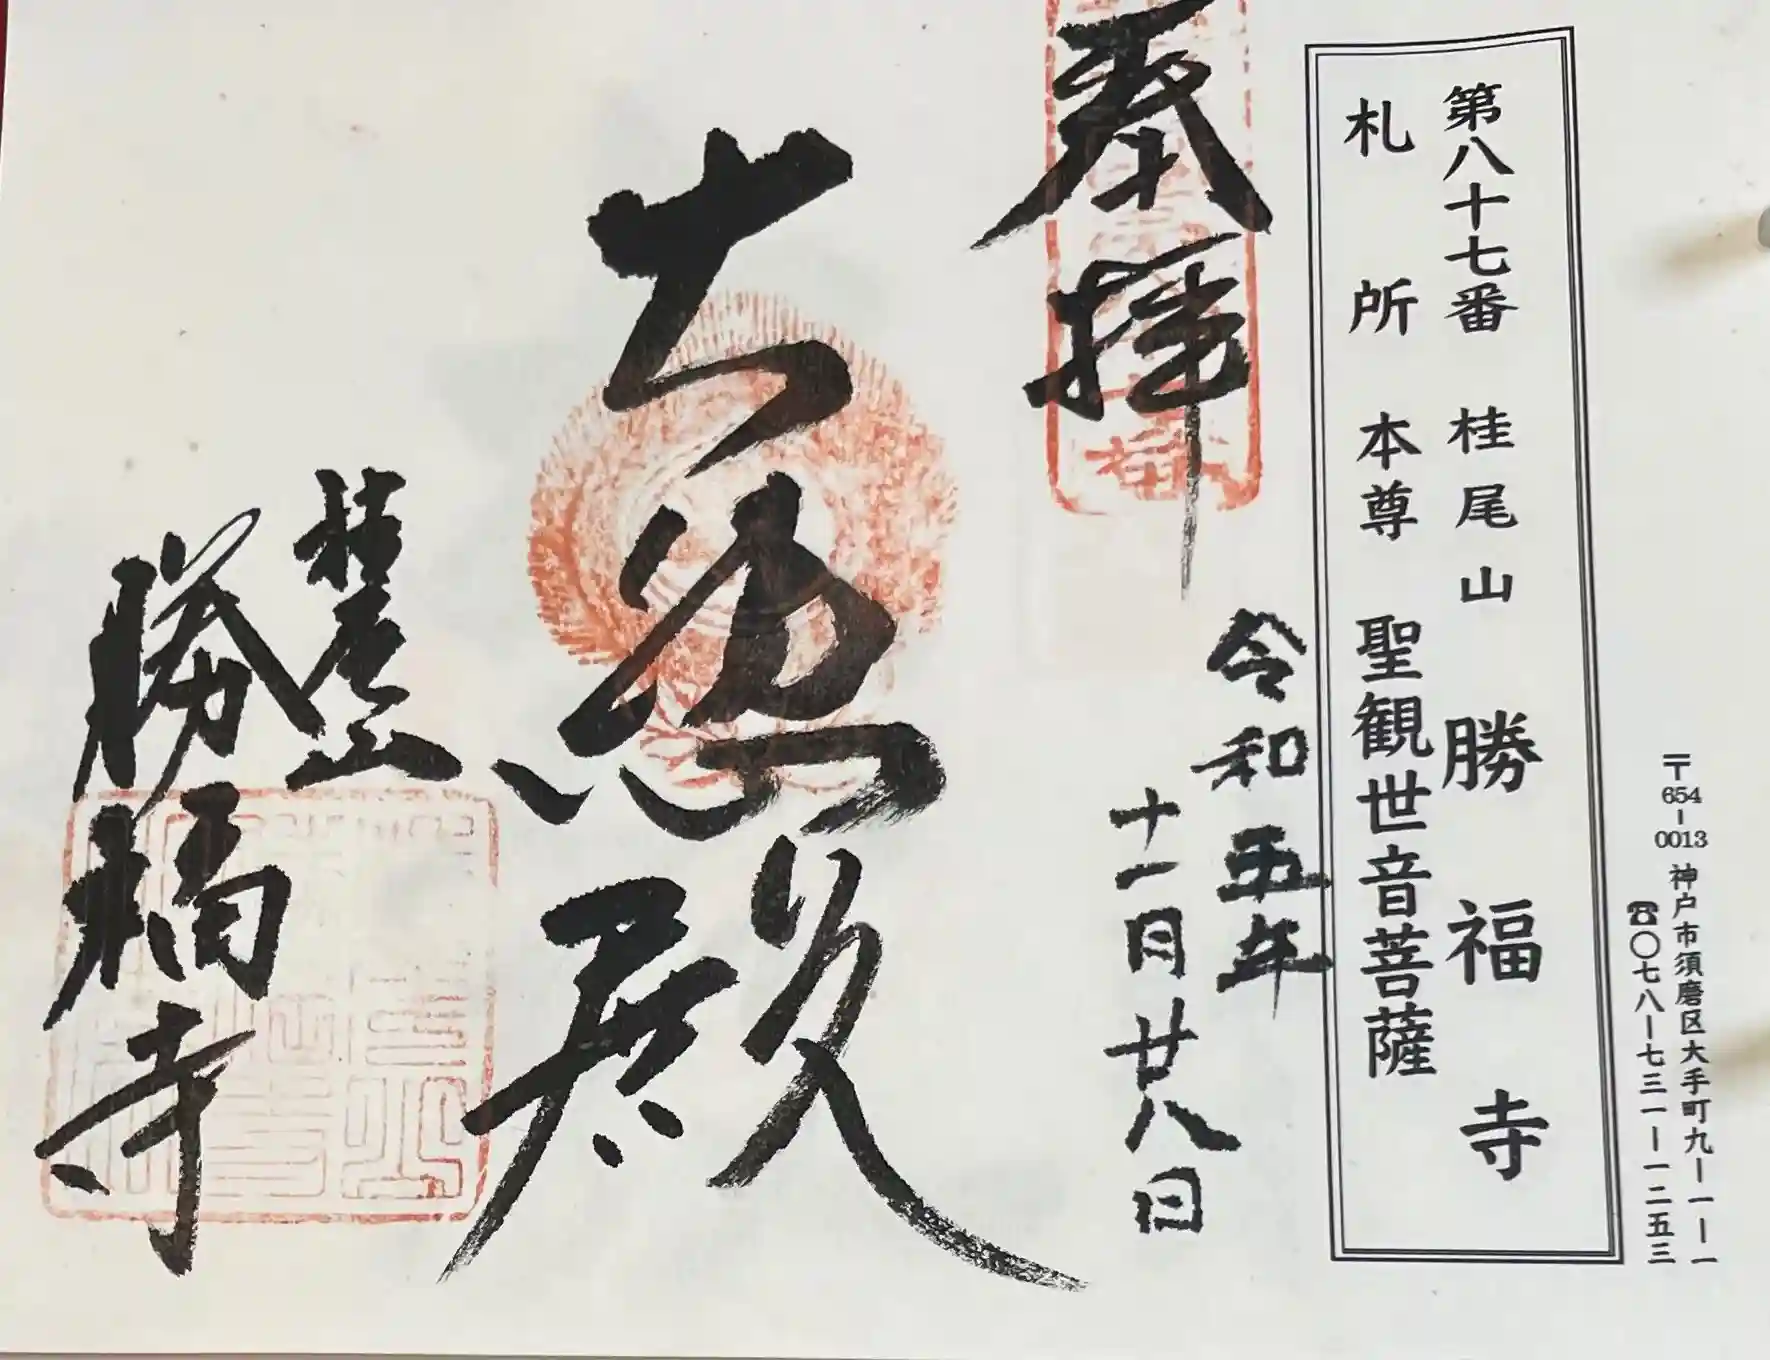 〒654-0013 神戸市須磨区大手町九ー一ー一
☎〇七八ー七三一ー一二五三
第八十七番 桂尾山 勝福寺
札所本尊 聖観世音菩薩
奉拝
令和五年
十一月廿八日
大悲殿
桂尾山
勝福寺